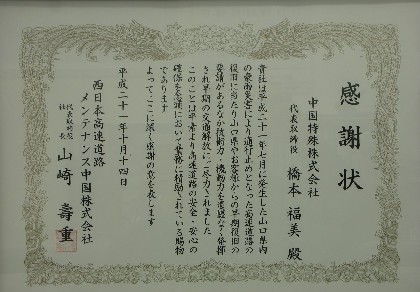 感謝状
中国特殊株式会社
代表取締役 橋本 福美 殿
貴社は平成二十一年七月に発生した山口県内
の豪雨災害により通行止めとなった高速道路の
復旧に当たり山口県やお客様からの早期復旧の
要請があるなか技術力・機動力を遺憾なく発揮
され早期の交通解放にご尽力されました
このことは平素より高速道路の安全・安心の
確保を念頭において業務に精励されている賜物
であります
よってここに深く感謝の意を表します
平成二十一年十月十四日
西日本高速道路
メンテナンス中国株式会社
代表取締役
社長
山崎 壽重